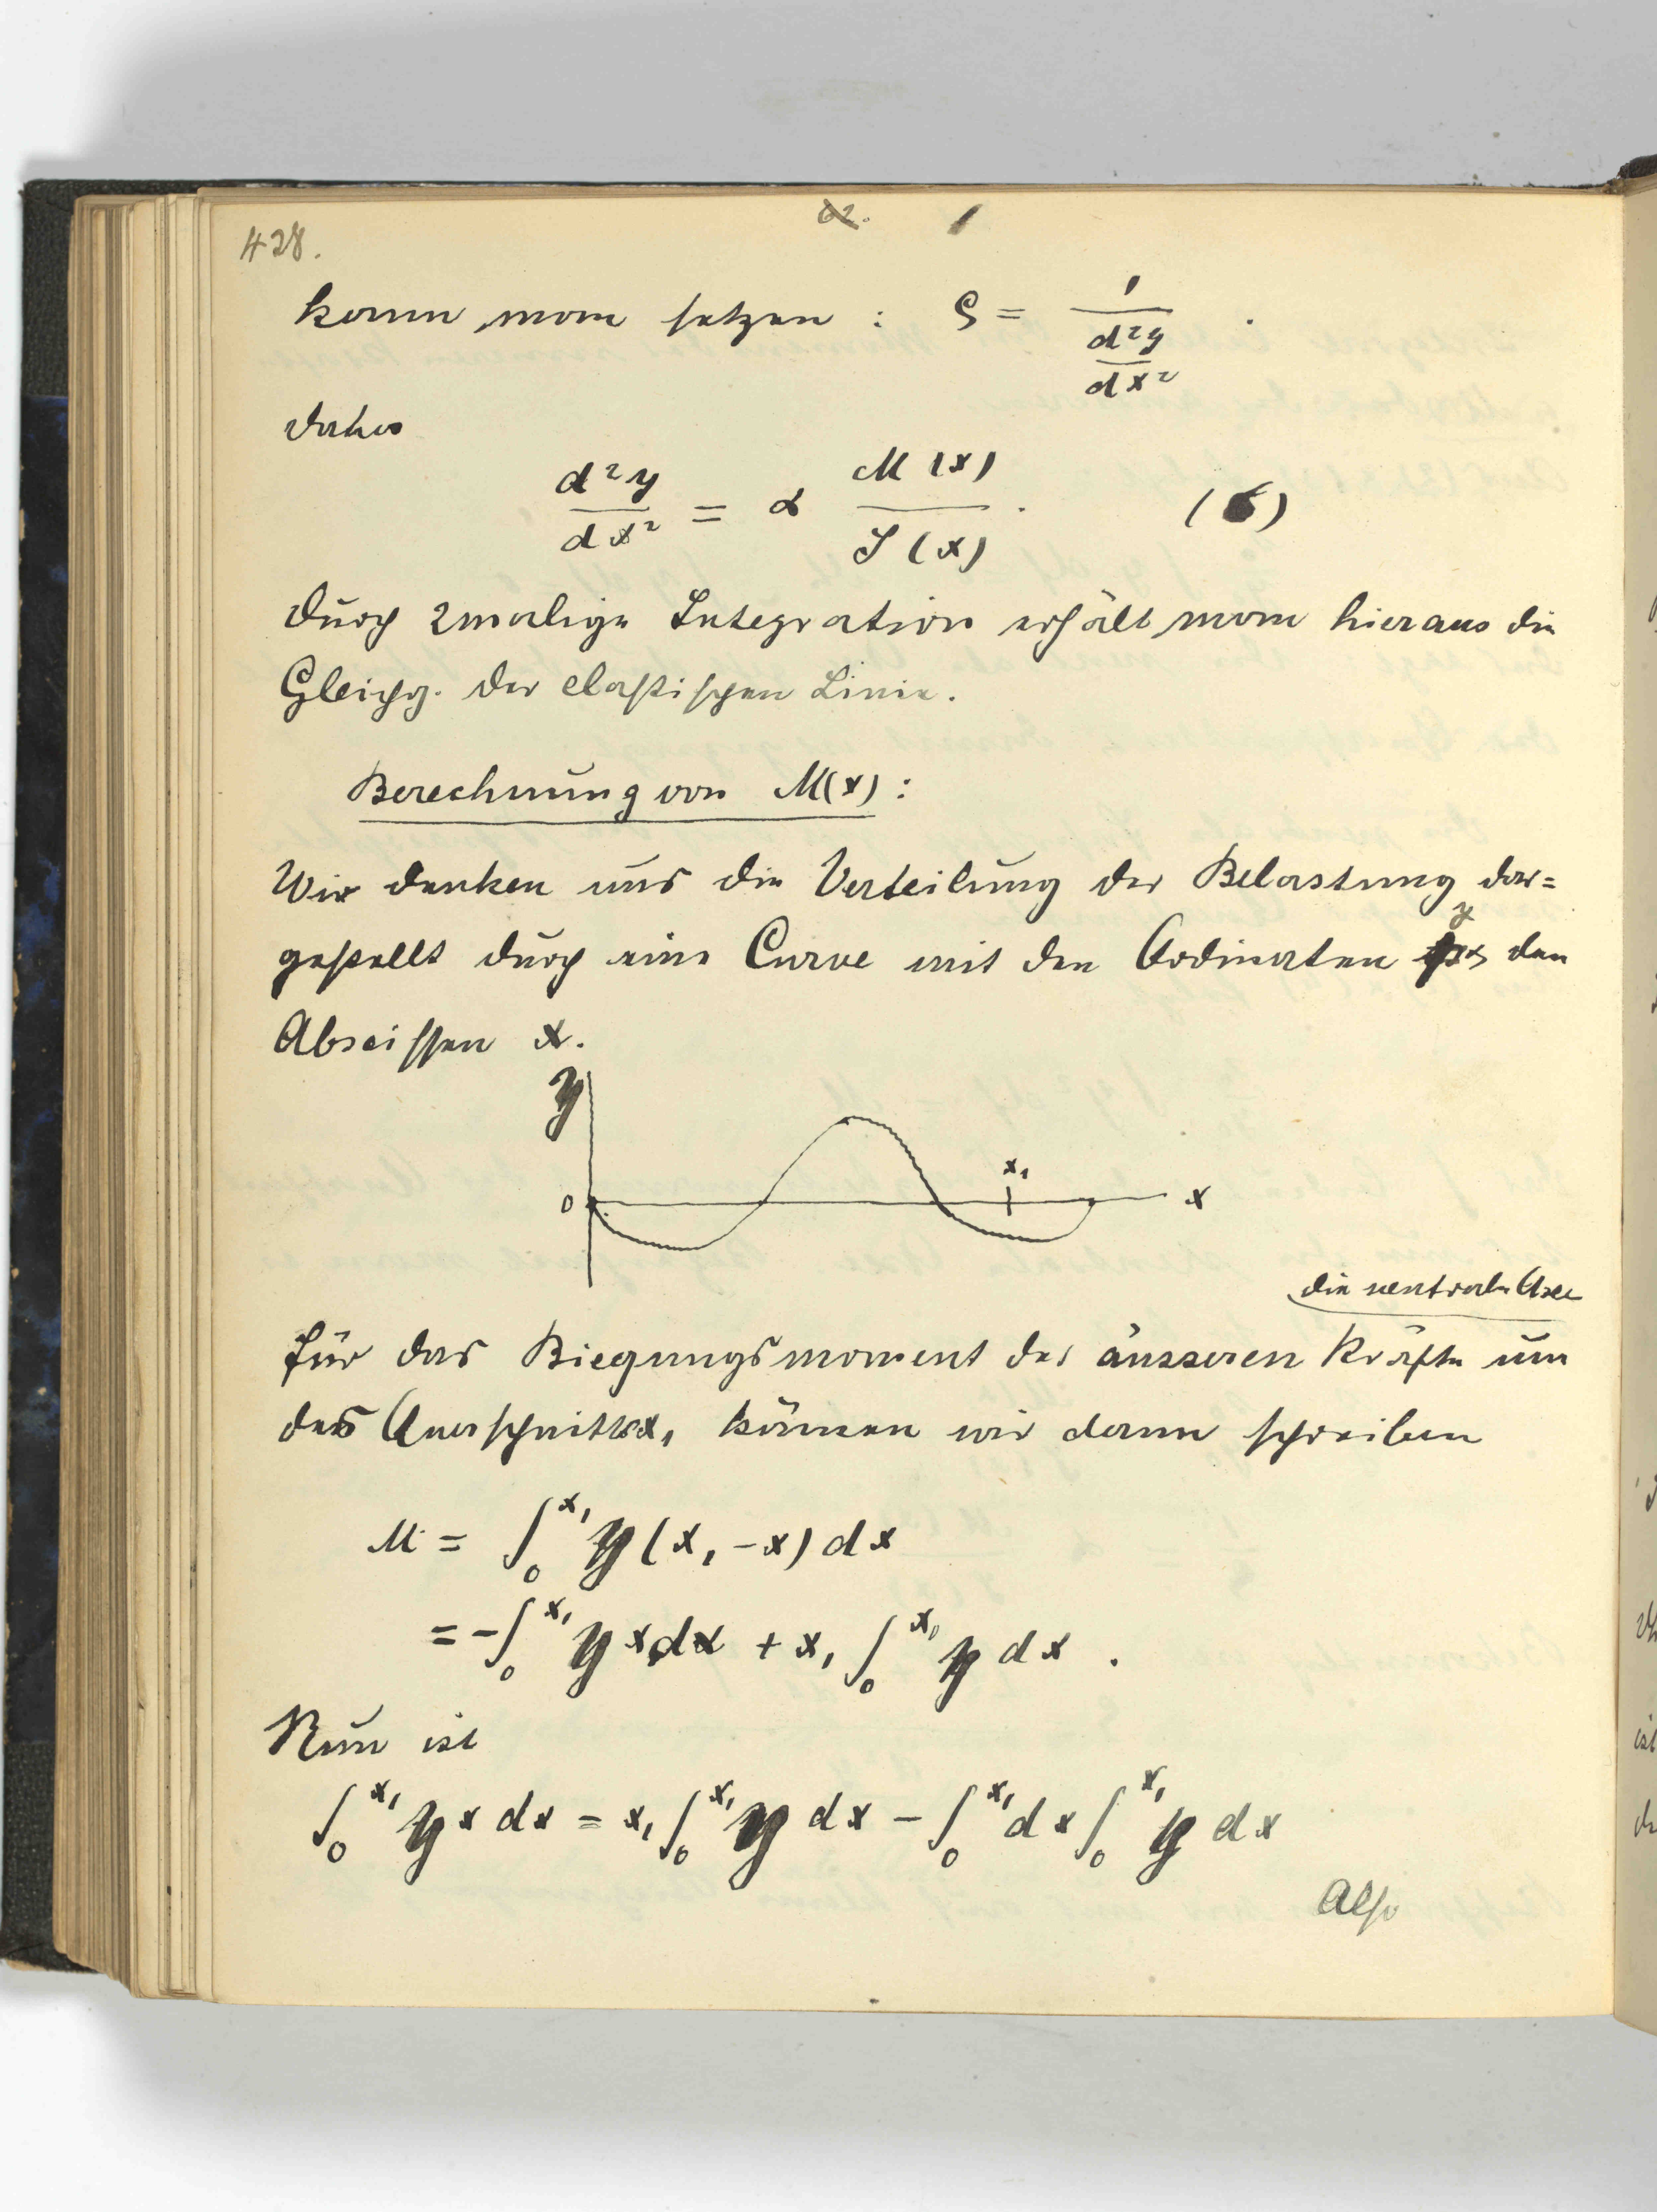 428.
62. 1
kann man setzen : ϱ = 1 / (d²y/dx²) .
daher
d²y/dx² = α M(x)/J(x) . (6)
Durch 2malige Integration erhält man hieraus die
Gleichg. der elastischen Linie.
Berechnung von M(x) :
Wir denken uns die Verteilung der Belastung dar=
gestellt durch eine Curve mit den Ordinaten y den
Abscissen x.
y
x₁
0 x
die neutrale Axe
für das Biegungsmoment der äusseren Kräfte um
des Querschnittes x₁ können wir dann schreiben
M = ∫₀^x₁ y (x₁ - x) dx
= - ∫₀^x₁ y x dx + x₁ ∫₀^x₁ y dx .
Nun ist
∫₀^x₁ y x dx = x₁ ∫₀^x₁ y dx - ∫₀^x₁ dx ∫₀^x₁ y dx
Also